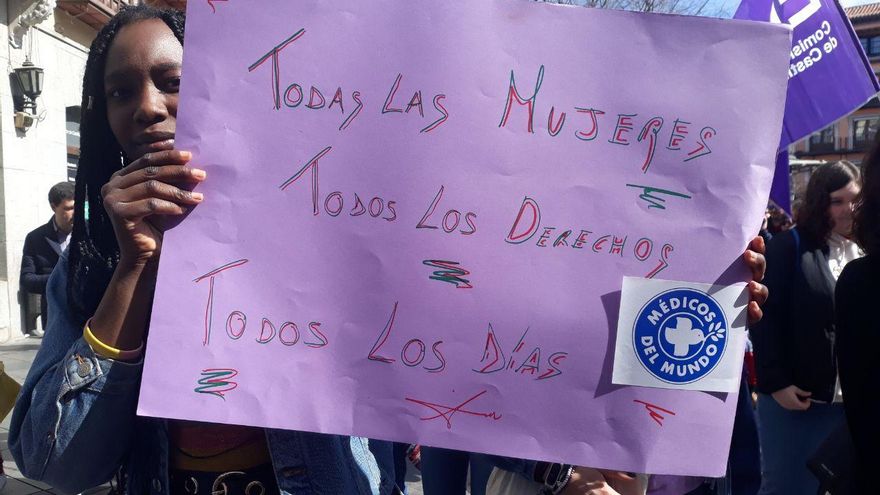 Todas Las Mujeres
Todos Los Derechos
Todos Los Días
MÉDICOS
DEL MUNDO
de Cast